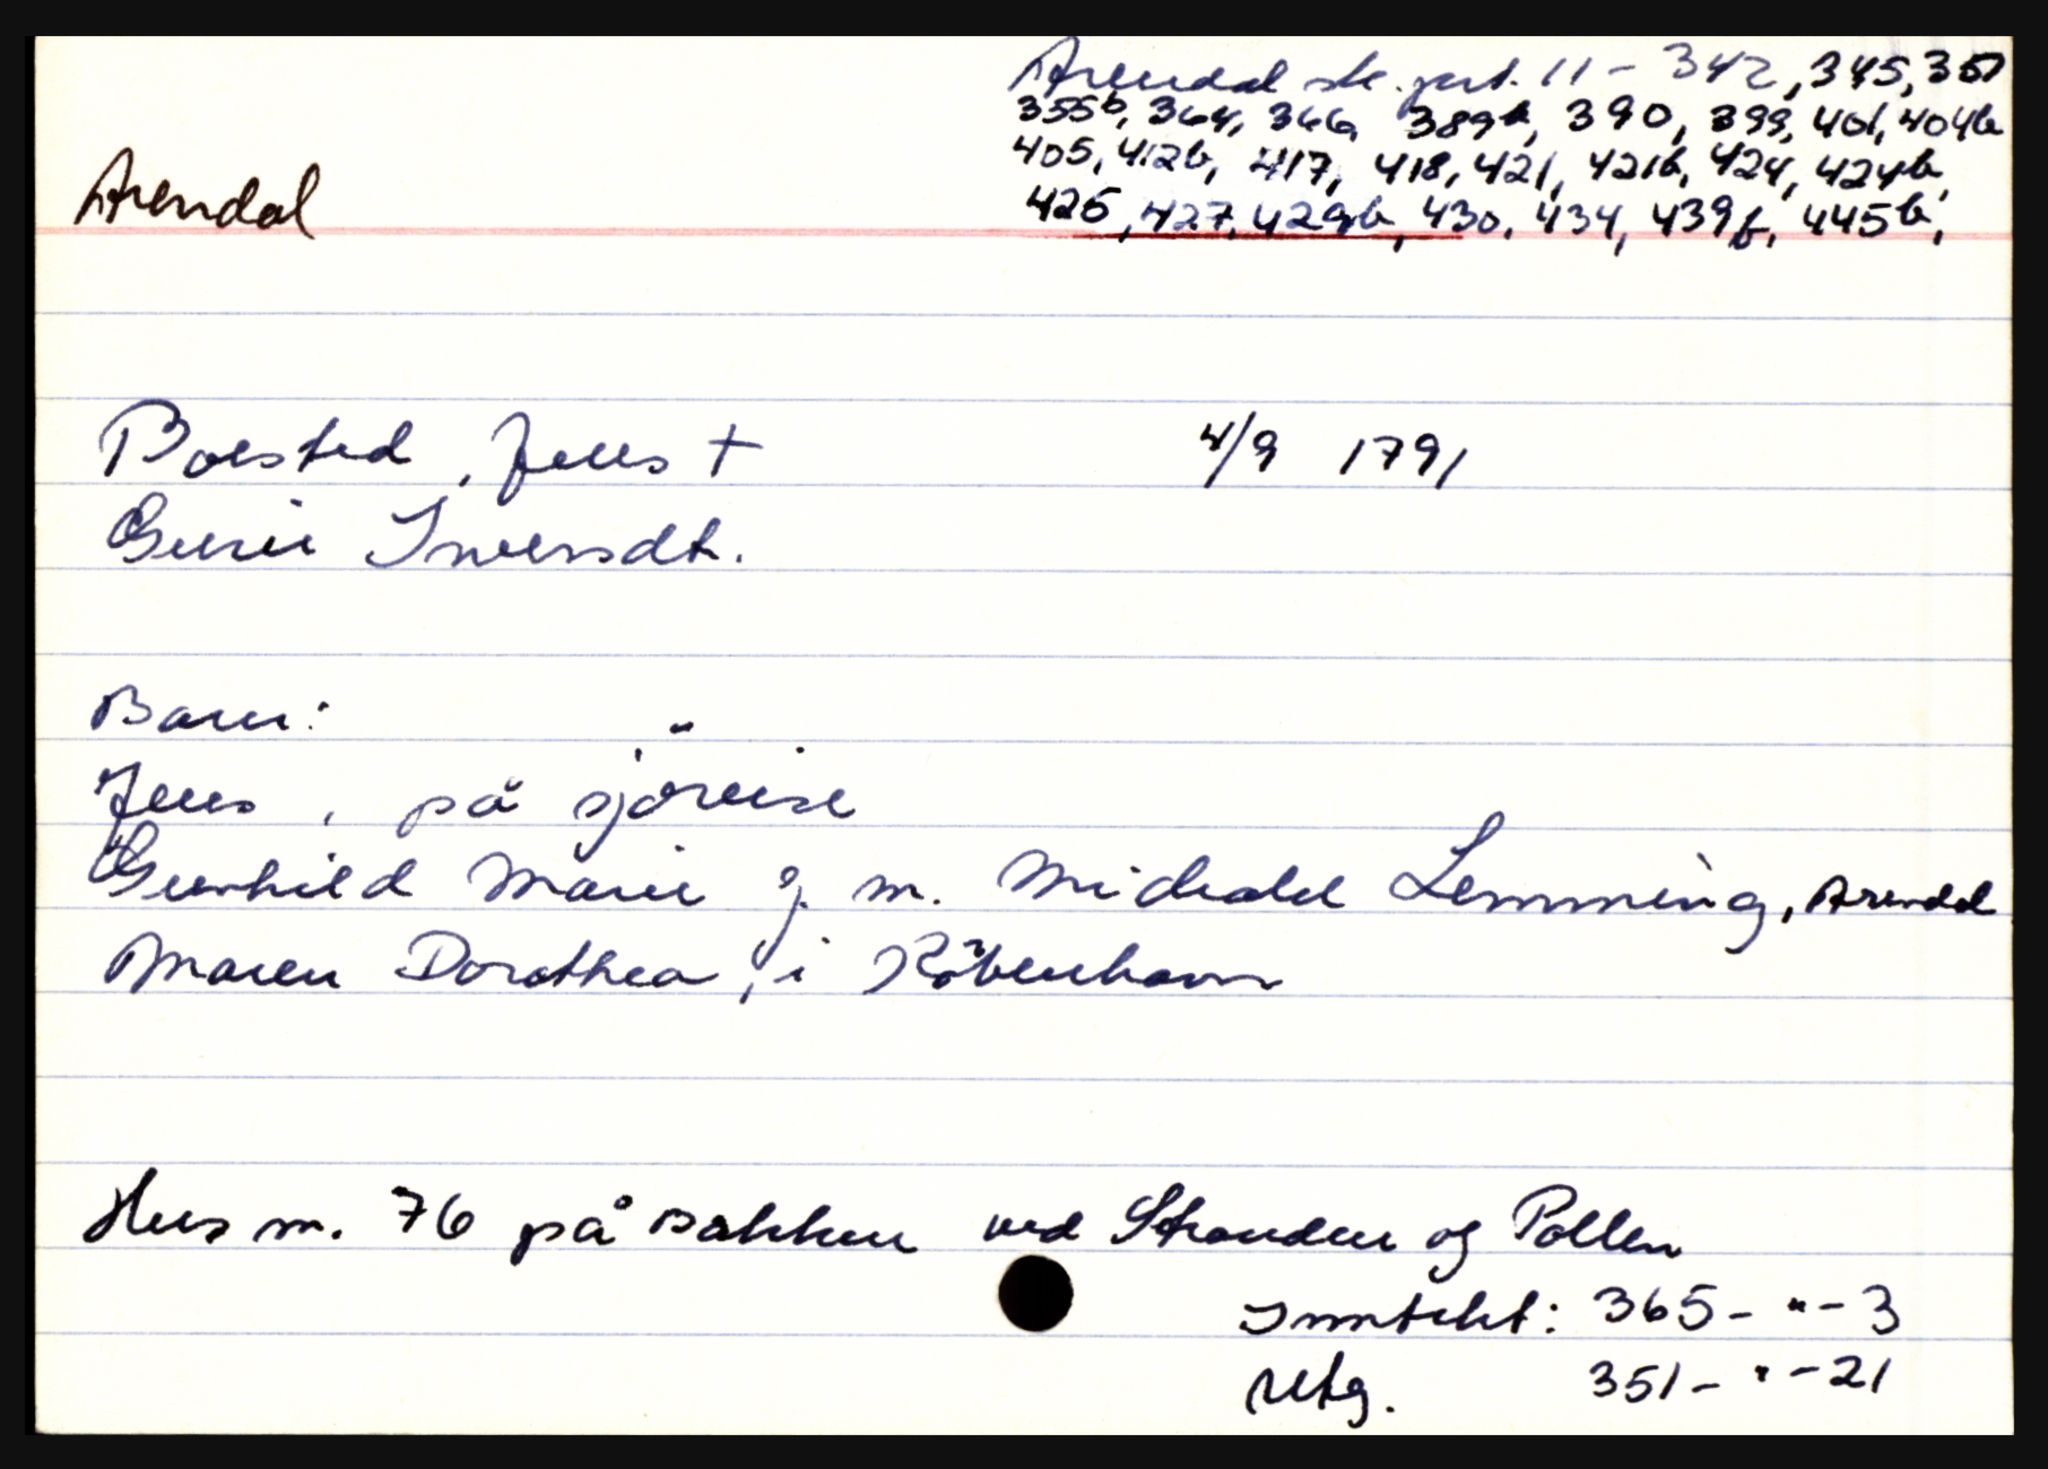 Arendal sk. prot. 11 - 342, 345, 351
355b, 364, 366, 389b, 390, 399, 401, 404b
405, 412b, 417, 418, 421, 421b, 424, 424b,
425, 427, 429b, 430, 434, 439b, 445b,
Arendal
Boested, Jens + 4/9 1791
Gurie Iversdt.
Barn:
Jens, på sjöreise
Gunhild Marie g. m. Michael Lemming, Arendal
Maren Dorothea, i Köbenhavn
Hus nr. 76 på Bakken ved Stranden og Pollen
Inntekt: 365 - " - 3
Utg. 351 - " - 21